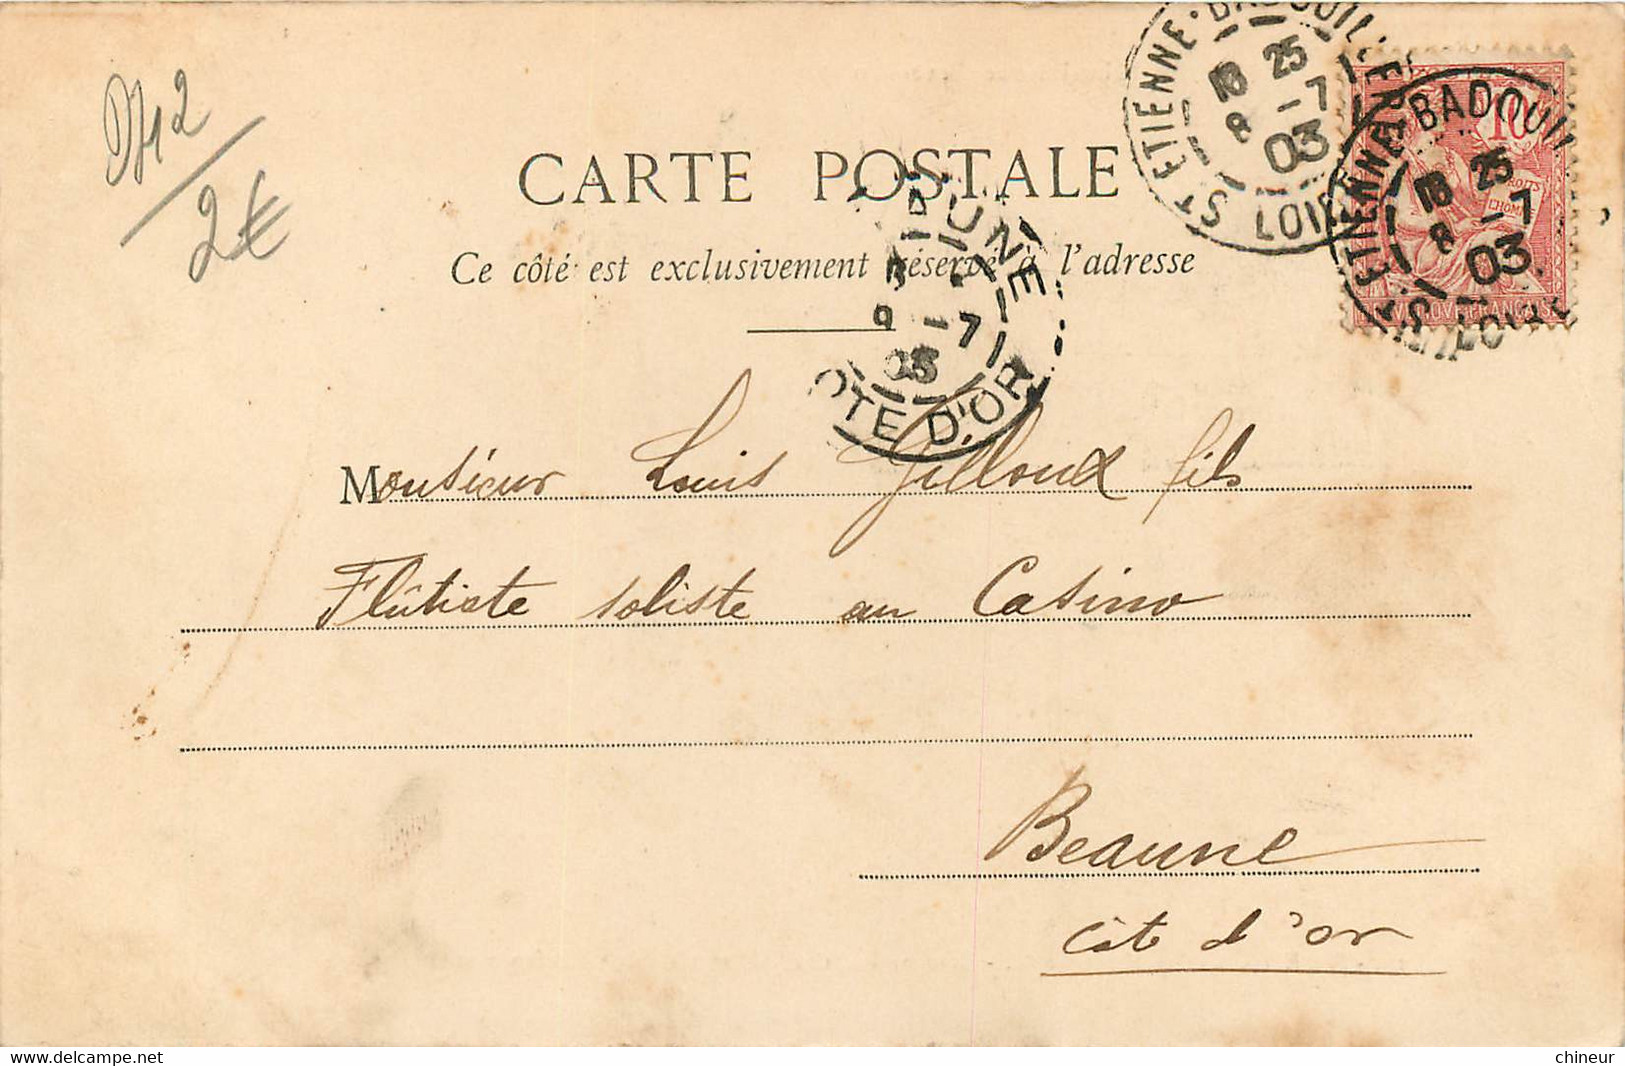 D112
2€
CARTE POSTALE
Ce côté est exclusivement réservé à l'adresse
ST ETIENNE · BADOUILLERE
18 25
8 -7
03
LOIRE
ST ETIENNE · BADOUIL
18 25
8 -7
03
LOIRE
10
DROITS
L'HOMME
BEAUNE
9 -7
03
COTE D'OR
Monsieur Louis Gilloux fils
Flûtiste soliste au Casino
Beaune
Côte d'or
www.delcampe.net
chineur